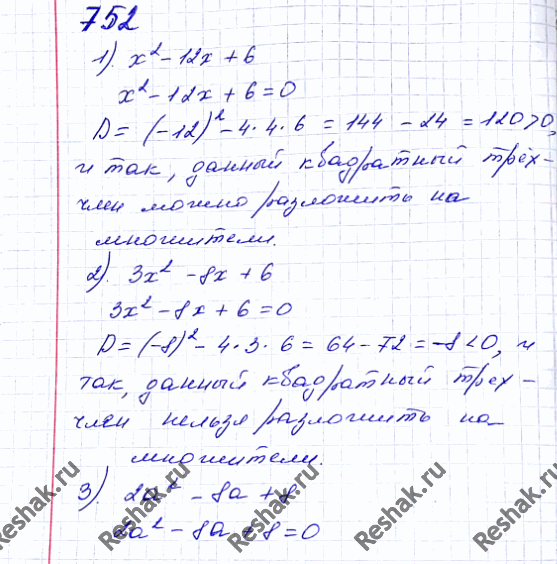 752
1). x² - 12x + 6
x² - 12x + 6 = 0
D = (-12)² - 4·4·6 = 144 - 24 = 120 > 0,
и так, данный квадратный трёх-
член можно разложить на
множители.
2). 3x² - 8x + 6
3x² - 8x + 6 = 0
D = (-8)² - 4·3·6 = 64 - 72 = -8 < 0, и
так, данный квадратный трех-
член нельзя разложить на
множители.
3). 2a² - 8a + 8
2a² - 8a + 8 = 0
Reshak.ru Reshak.ru Reshak.ru Reshak.ru